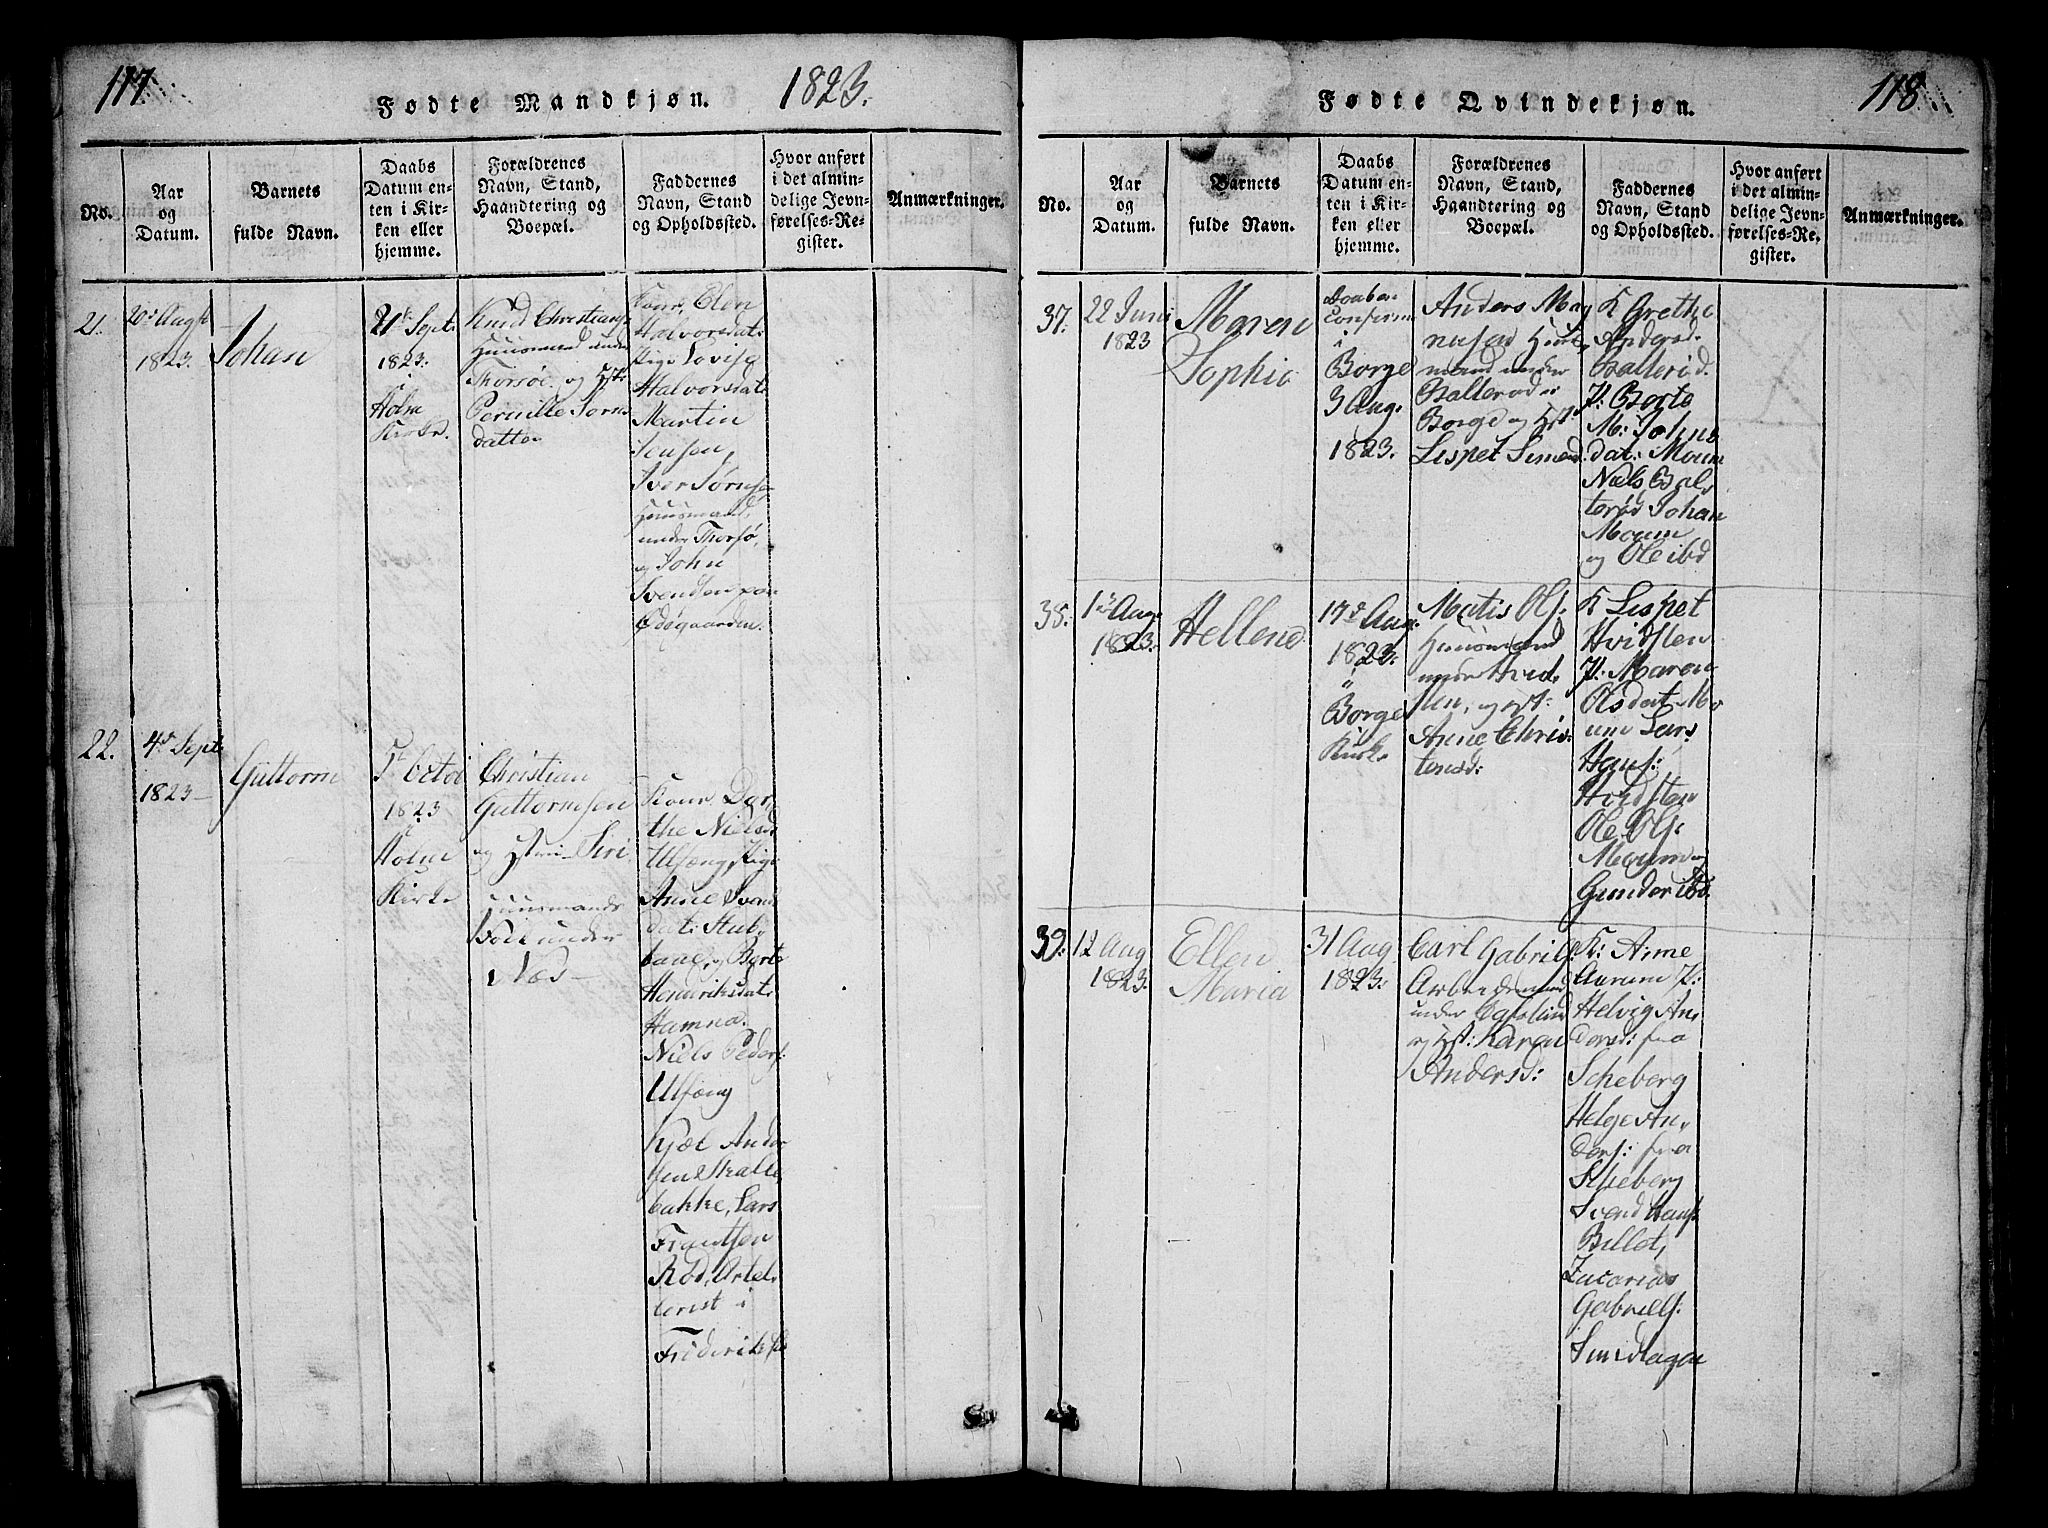 117
Fødte Mandkjøn.
1823.
No.
Aar
og
Datum.
Barnets
fulde Navn.
Daabs
Datum en-
ten i Kir-
ken eller
hjemme.
Forældrenes
Navn, Stand,
Haandtering og
Boepæl.
Faddernes
Navn, Stand
og Opholdssted.
Hvor anført
i det almin-
delige Jevn-
førelses-Re-
gister.
Anmærkninger.
21.
20de Augst
1823.
Johan
21de Sept.
1823.
i
Holm
Kirke.
Knud Christians
Huusmand under
Thorsøe og Hstr
Pernille Sørns
datter
Kone, Elen
Halvorsdat.
Pige Lovisa
Halvorsdat.
Martin
Jensen,
Iver Sørnsen
Huusmand
under Thorsø,
og John
Svendsen paa
Ødegaarden.
22.
4de Sept
1823
Guttorm
5te Octob
1823
i
Holm
Kirke
Christian
Guttormsen
og Hstru Siri
Huusmands
Folk under
Næs
Kone. Dor,
the Nielsd
Ulfeng, Pige
Anne Svens
dat. Stub,
bane, og Berte
Henriksdat.
Hamna.
Niels Peders:
Ulfeng
Kjæl Ander
sen Skalle
bakke, Lars
Frantsen
Rød, Artel,
lerist i
Friderikst
118.
Fødte Qvindekjøn.
No.
Aar
og
Datum.
Barnets
fulde Navn.
Daabs
Datum en-
ten i Kir-
ken eller
hjemme.
Forældrenes
Navn, Stand,
Haandtering og
Boepæl.
Faddernes
Navn, Stand
og Opholdssted.
Hvor anført
i det almin-
delige Jevn-
førelses-Re-
gister.
Anmærkninger.
37.
22 Juni
1823
Maren
Sophie
Daaben
Confirm
i
Borge
3 Aug.
1823.
Anders Mag
nusen Huus,
mand under
Balterød i
Borge og Hst
Lispet Simensd.
K Grethe
Andersd.
Balterød.
P: Borte
M: Johns
dat: Moum
Niels Bal,
terød Johan
Moum
og Ole ibd
38.
1ste Aug.
1823.
Hellene
17de Aug.
1823.
i
Borge
Kirke
Matis Ols:
Huusmand
under Hvid,
sten, og Hst:
Anne Chris
tensd:
K Lispet
Hvidsten
P: Maren
Olsdat Mo
um Lars
Hans:
Hvidsten
Ole Ols:
Moum og
Gunder ibd.
39.
12 Aug
1823.
Ellen
Maria
31 Aug
1823.
Carl Gabriels:
Arbeidsmand
under
og Hst: Karen
Andersd:
K: Anne
Aarum P:
Helvig An,
dersd: fra
Scheberg
Helge An,
ders: fra
Scheberg
Svend Hans:
Billet,
Zacarias
Gabriels: